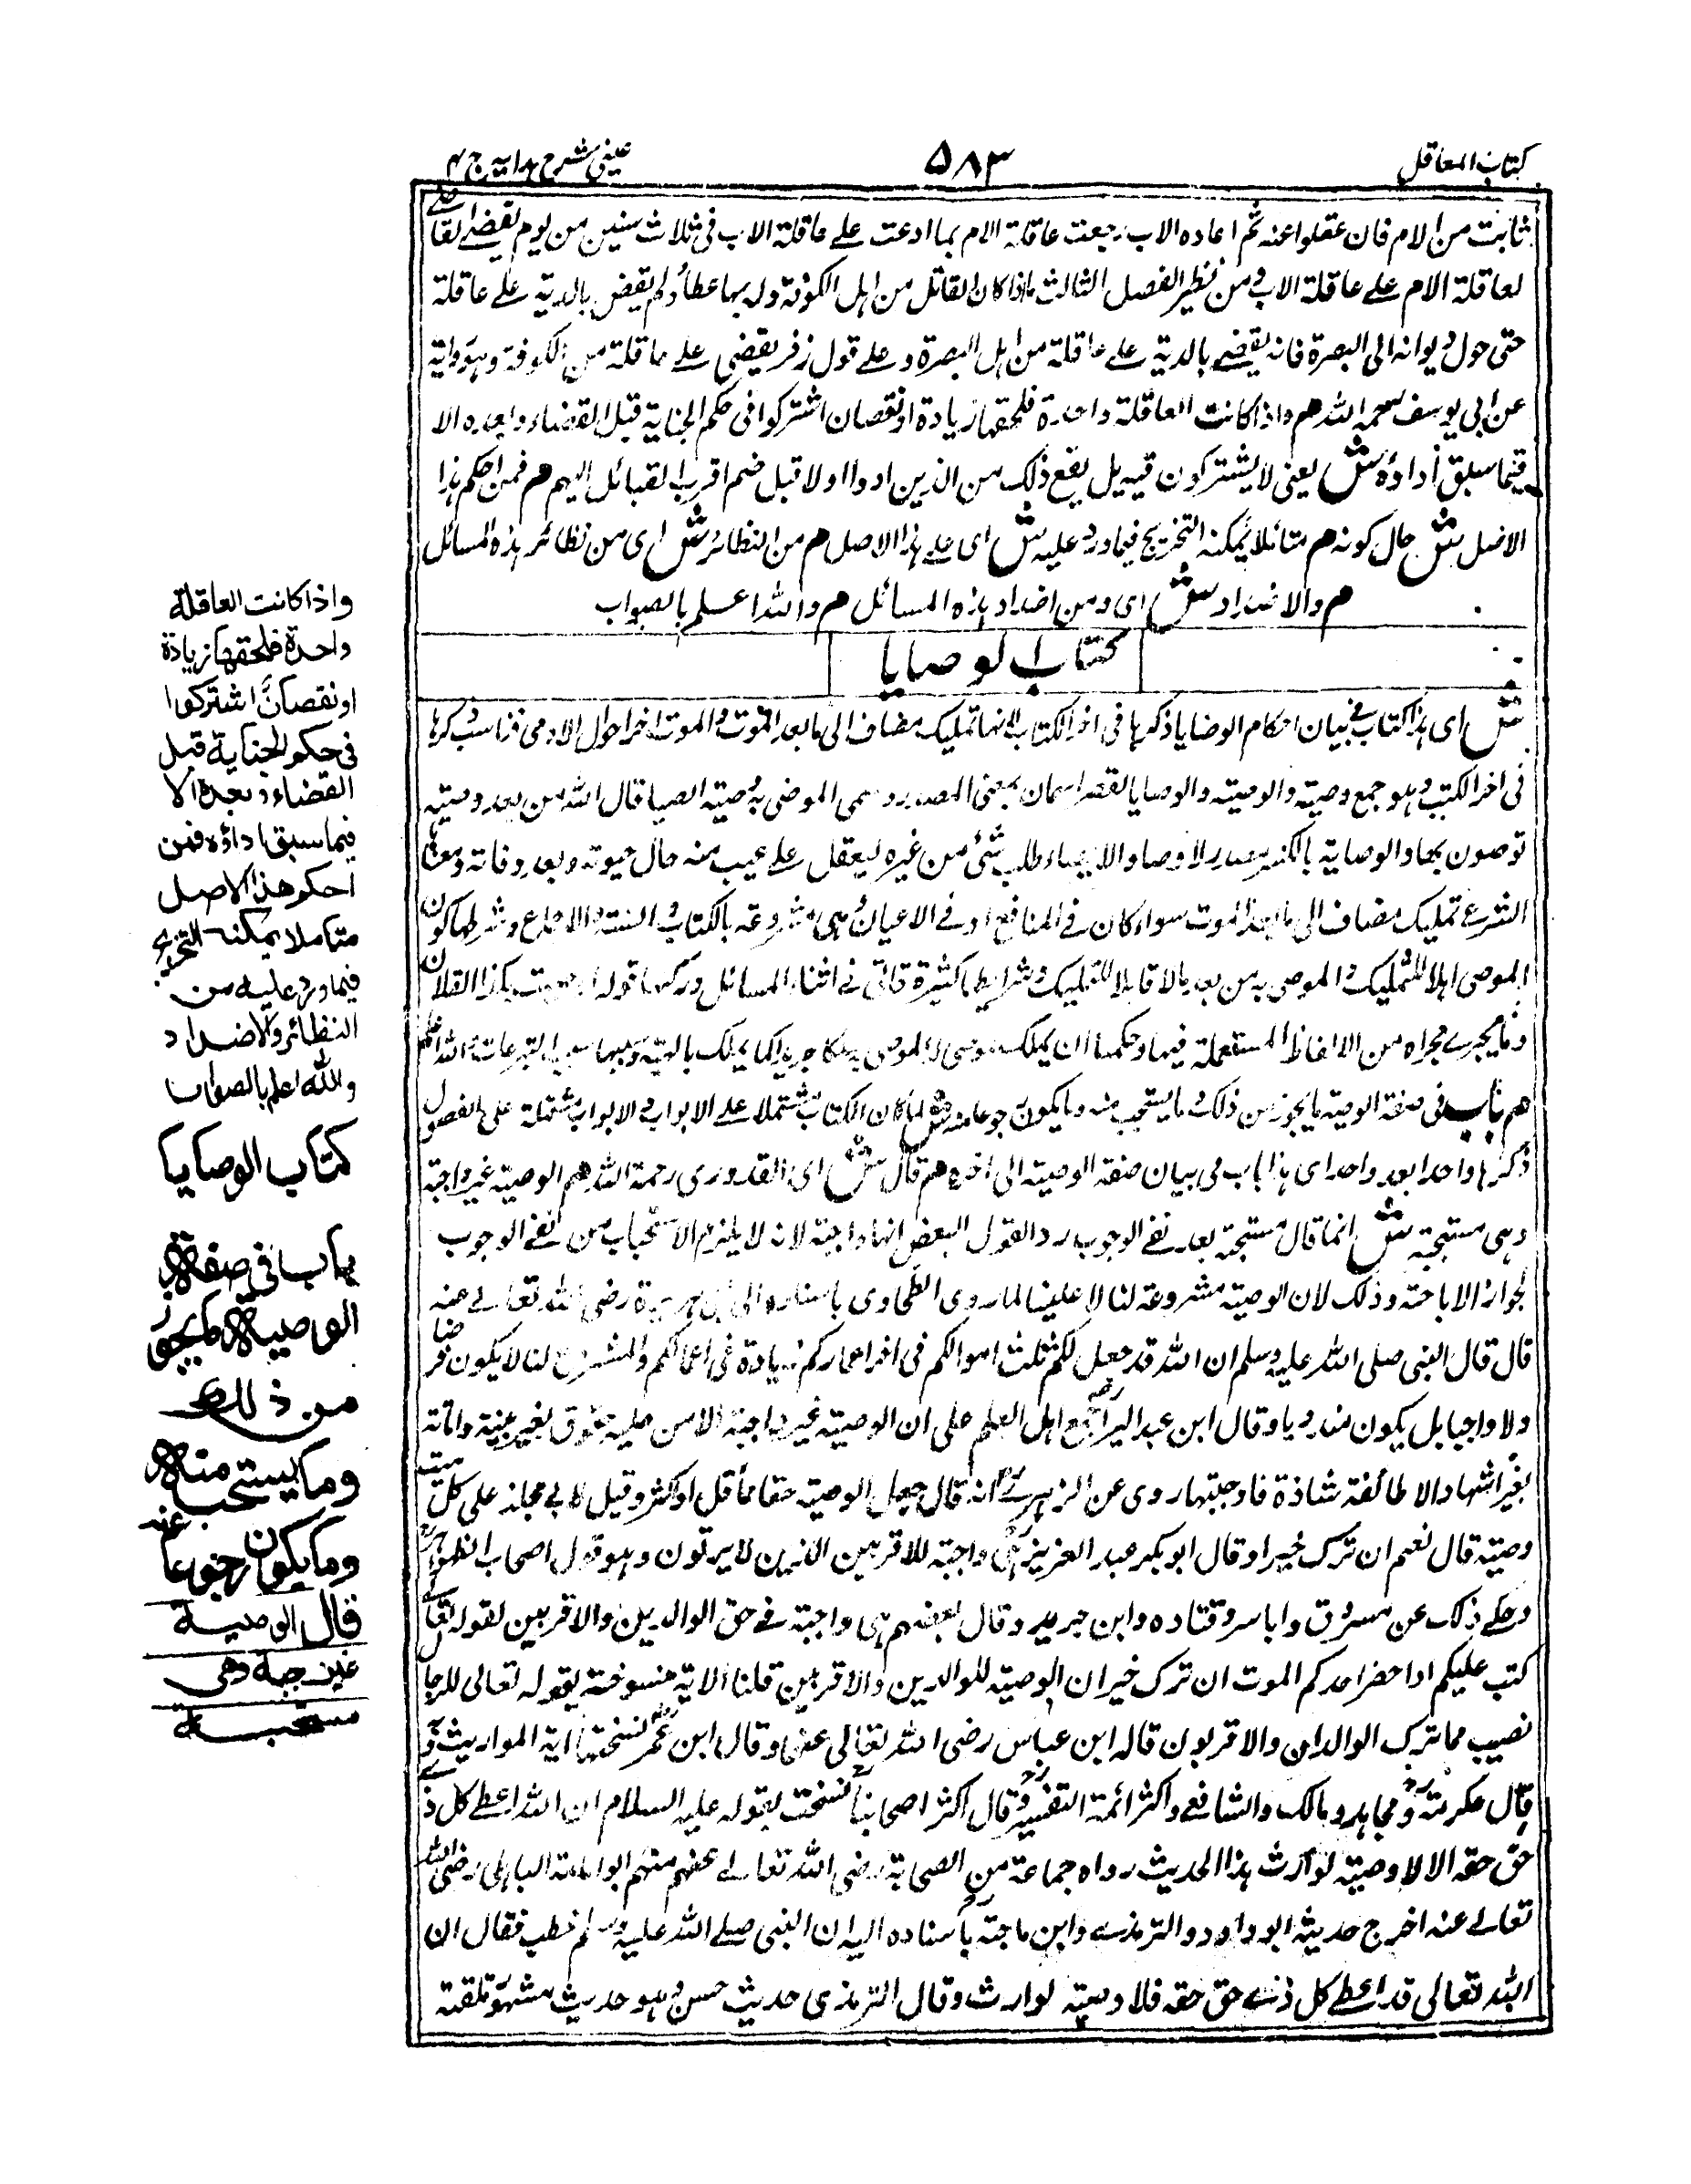 كتاب المعاقل
٥٨٣
عينى شرح هدايه ج ٤
ثابت من الام فان عقلوا عنه ثم اعاده الاب رجعت عاقلة الام بما ادعت على عاقلة الاب فى ثلاث سنين من يوم يقضى القاضے
لعاقلة الام على عاقلة الاب ومن نظير الفصل الثالث ماذا كان القاتل من اهل الكوفة وله بها عطاء ولم يقض بالدية على عاقلة
حتى حول ديوانه الى البصرة فانه يقضے بالدية على عاقلة من اهل البصرة وعلى قول زفر يقضى على عاقلة من الكوفة وهو رواية
عن ابى يوسف رحمه الله هم واذا كانت العاقلة واحدة فلحقها زيادة او نقصان اشتركوا فى حكم الجناية قبل القضاء وبعده الا
فيما سبق أداؤه ش يعنى لا يشتركون فيه بل يقع ذلك من الذين ادوا اولا قبل ضم اقرب القبائل اليهم هم فمن احكم هذا
الاصل ش حال كونه هم متأملا يمكنه التخريج فيما ورد عليه ش اى على هذا الاصل هم من النظائر ش اى من نظائر هذه المسائل
هم والاضداد ش اى ومن اضداد هذه المسائل هم والله اعلم بالصواب
كتاب الوصايا
ش اى هذا كتاب فى بيان احكام الوصايا ذكرها فى اخر الكتاب لانها تمليك مضاف الى ما بعد الموت والموت اخر احوال الادمى فناسب ذكرها
فى اخر الكتب وهو جمع وصية والوصية والوصايا القصر اسمان بمعنى المصدر وسمى الموصى به وصية ايضا قال الله من بعد وصية
توصون بها والوصاية بالكسر مصدر لاوصا والايصاء طلب شئ من غيره ليعقل على غيب منه حال حيوته وبعد وفاته ومعناها
الشرع تمليك مضاف الى ما بعد الموت سواء كان فى المنافع او فى الاعيان وهى مشروعة بالكتاب والسنة والاجماع وشرطها كون
الموصى اهلا للتمليك والموصى به من بعد مالا قابلا للتمليك وشرائط كثيرة تاتى فى اثناء المسائل وركنها قوله اوصيت بكذا لفلان
وما يجرے مجراه من الالفاظ المستعملة فيها وحكمها ان يملك الموصى له الموصى به ملكا جديدا كما يملك بالهبة وسببها سبب التبرعات والله اعلم
هم باب فى صفة الوصية ما يجوز من ذلك وما يستحب منه وما يكون رجوعا عنه ش لما كان الكتاب مشتملا على الابواب والابواب مشتملة على الفصول
ذكرها واحدا بعد واحد اى هذا باب فى بيان صفة الوصية الى اخره هم قال ش اى القدورى رحمة الله هم الوصية غير واجبة
وهى مستحبة ش انما قال مستحبة بعد نفے الوجوب رد القول البعض انها واجبة لانه لا يلزم الاستحباب من نفے الوجوب
لجواز الاباحة وذلك لان الوصية مشروعة لنا لا علينا لما روى الطحاوى باسناده الى ابى هريرة رضى الله تعالے عنه
قال قال النبى صلى الله عليه وسلم ان الله قد جعل لكم ثلث اموالكم فى اخر اعماركم زيادة فى اعمالكم والمشروع لنا لا يكون فرضا
ولا واجبا بل يكون مندوبا وقال ابن عبد البر اجمع اهل العلم على ان الوصية غير واجبة الا من عليه حقوق بغير بينة وامانة
بغير اشهاد الا طائفة شاذة فاوجبتها روى عن الزهرے انه قال جعل الوصية حقا مما قل او كثر وقيل لابے مجلز على كل ميت
وصية قال نعم ان ترك خيرا وقال ابو بكر عبد العزيز هى واجبة للاقربين الذين لا يرثون وهو قول اصحاب الظواهر
وحكے ذلك عن مسروق واياس وقتاده وابن جرير وقال بعضهم هى واجبة فى حق الوالدين والاقربين لقوله تعالے
كتب عليكم اذا حضر احدكم الموت ان ترك خيرا ن الوصية للوالدين والاقربين قلنا الاية منسوخة بقوله تعالى للرجال
نصيب مما ترك الوالدان والاقربون قاله ابن عباس رضى الله تعالى عنهما وقال ابن عمر نسختها اية المواريث وبه
قال عكرمة ومجاهد ومالك والشافعے واكثر ائمة التفسير وقال اكثر اصحابنا نسخت بقوله عليه السلام ان الله اعطے كل ذے
حق حقه الا لا وصية لوارث هذا الحديث رواه جماعة من الصحابة رضى الله تعالے عنهم منهم ابو امامة الباهلى رضى الله
تعالے عنه اخرج حديثه ابو داود والترمذے وابن ماجة باسناده اليه ان النبى صلے الله عليه وسلم خطب فقال ان
الله تعالى قد اعطے كل ذے حق حقه فلا وصية لوارث وقال الترمذى حديث حسن وهو حديث مشهور تلقته
واذا كانت العاقلة
واحدة فلحقها زيادة
او نقصان اشتركوا
فى حكم الجناية قبل
القضاء وبعده الا
فيما سبق اداؤه فمن
احكم هذا الاصل
متأملا يمكنه التخريج
فيما ورد عليه من
النظائر والاضداد
والله اعلم بالصواب
كتاب الوصايا
باب فى صفة
الوصية ما يجوز
من ذلك
وما يستحب منه
وما يكون رجوعا عنه
قال الوصية
غير واجبة وهى
مستحبة